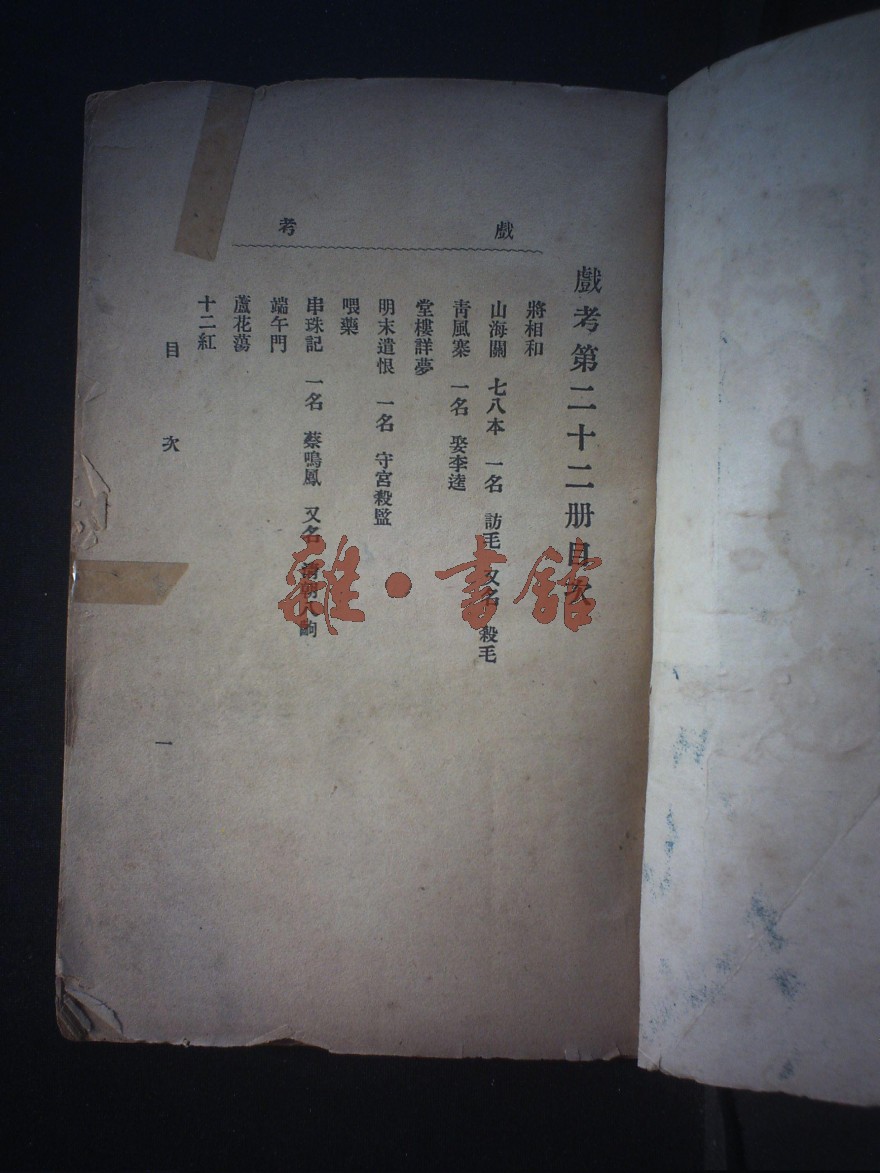 戲考
戲考第二十二册目次
將相和
山海關 七八本 一名 訪毛 又名 殺毛
青風寨 一名 娶李逵
堂樓詳夢
明末遺恨 一名 守宮殺監
喂藥
串珠記 一名 蔡鳴鳳 又名
端午門
蘆花蕩
十二紅
目次
一
雜·書館